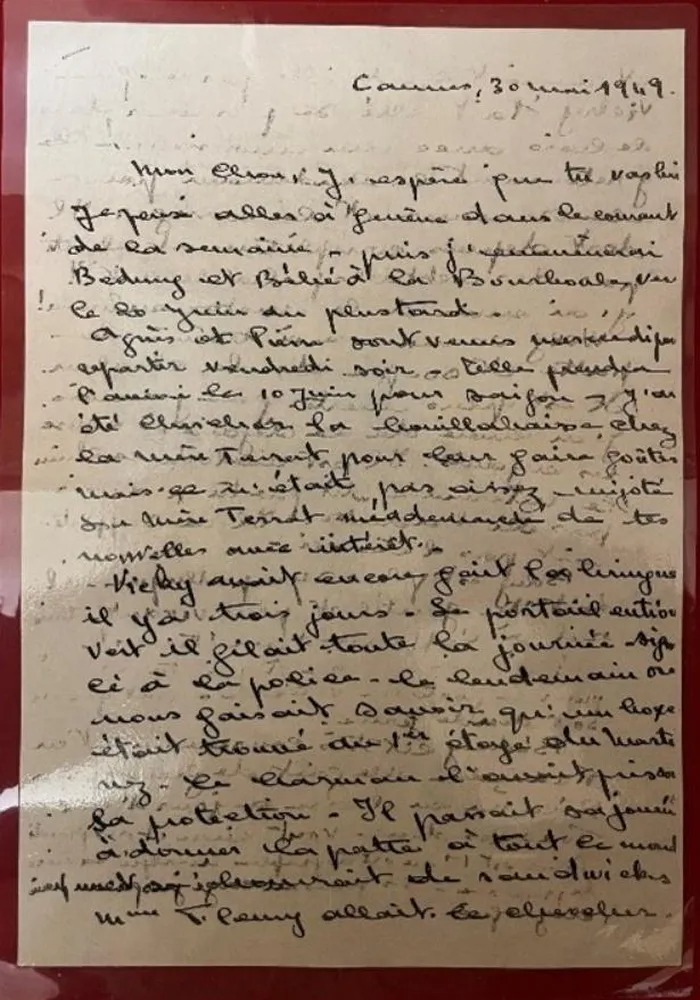 Cannes, 30 mai 1949.
Mon Chou, J'espère que tu vas bien
Je pense aller à Genève dans le courant
de la semaine - puis j'emmènerai
et Bébé à la Bourboule, vers
le 20 Juin au plus tard.
Agnès et Pierre sont venus mercredi pr
repartir vendredi soir - Elle prendra
l'avion le 10 Juin pour Saigon - J'ai
été chercher la bouillabaisse chez
la mère Terrat pour leur faire goûter
mais ce n'était pas assez mijoté
La Mère Terrat m'a demandé de tes
nouvelles avec intérêt.
- Vicky avait encore fait la bringue
il y a trois jours - Le portail entrou
vert il filait toute la journée - sign
lé à la police - le lendemain on
nous faisait savoir qu'un boxer
était trouvé au 1er étage du Marti
nez - le barman l'avait pris s
sa protection - Il passait sa journée
à donner la patte à tout le mond
de sandwichs
Mme Fleury allait le chercher.